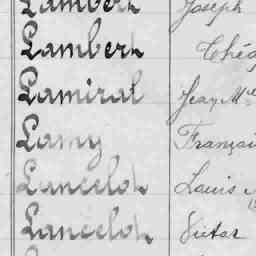 Lambert Joseph
Lambert
Lamiral Jean M
Lamy Françai
Lancelot Louis
Lancelot Victor